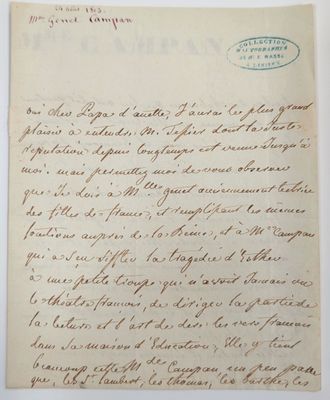 24 août 1803.
Mme Genet Campan
COLLECTION
D'AUTOGRAPHES
oui cher Papa d'anette, J'aurai le plus grand
plaisir à entendre M. Tessier dont la Juste
réputation depuis longtemps est venue Jusqu'à
moi. mais permettez moi de vous observer
que Je dois à Mlle genet anciennement lectrice
des filles de france, et remplissant les mêmes
fonctions auprès de la Reine, et à Me Campan
qui a fait la tragédie d'Esther
à une petite troupe qui n'avoit Jamais vu
le théatre francois, de diriger la partie de
la lecture et l'art de dire les vers francais
dans sa maison d'Education, Elle y tient
beaucoup cette Me de Campan, un peu parce
que, les St. lambert, les thomas, les barthe, les